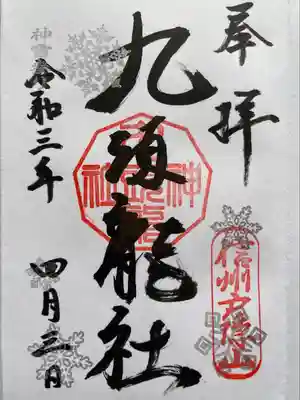 奉拝
信州戸隠山
九頭龍社
令和三年
四月三日